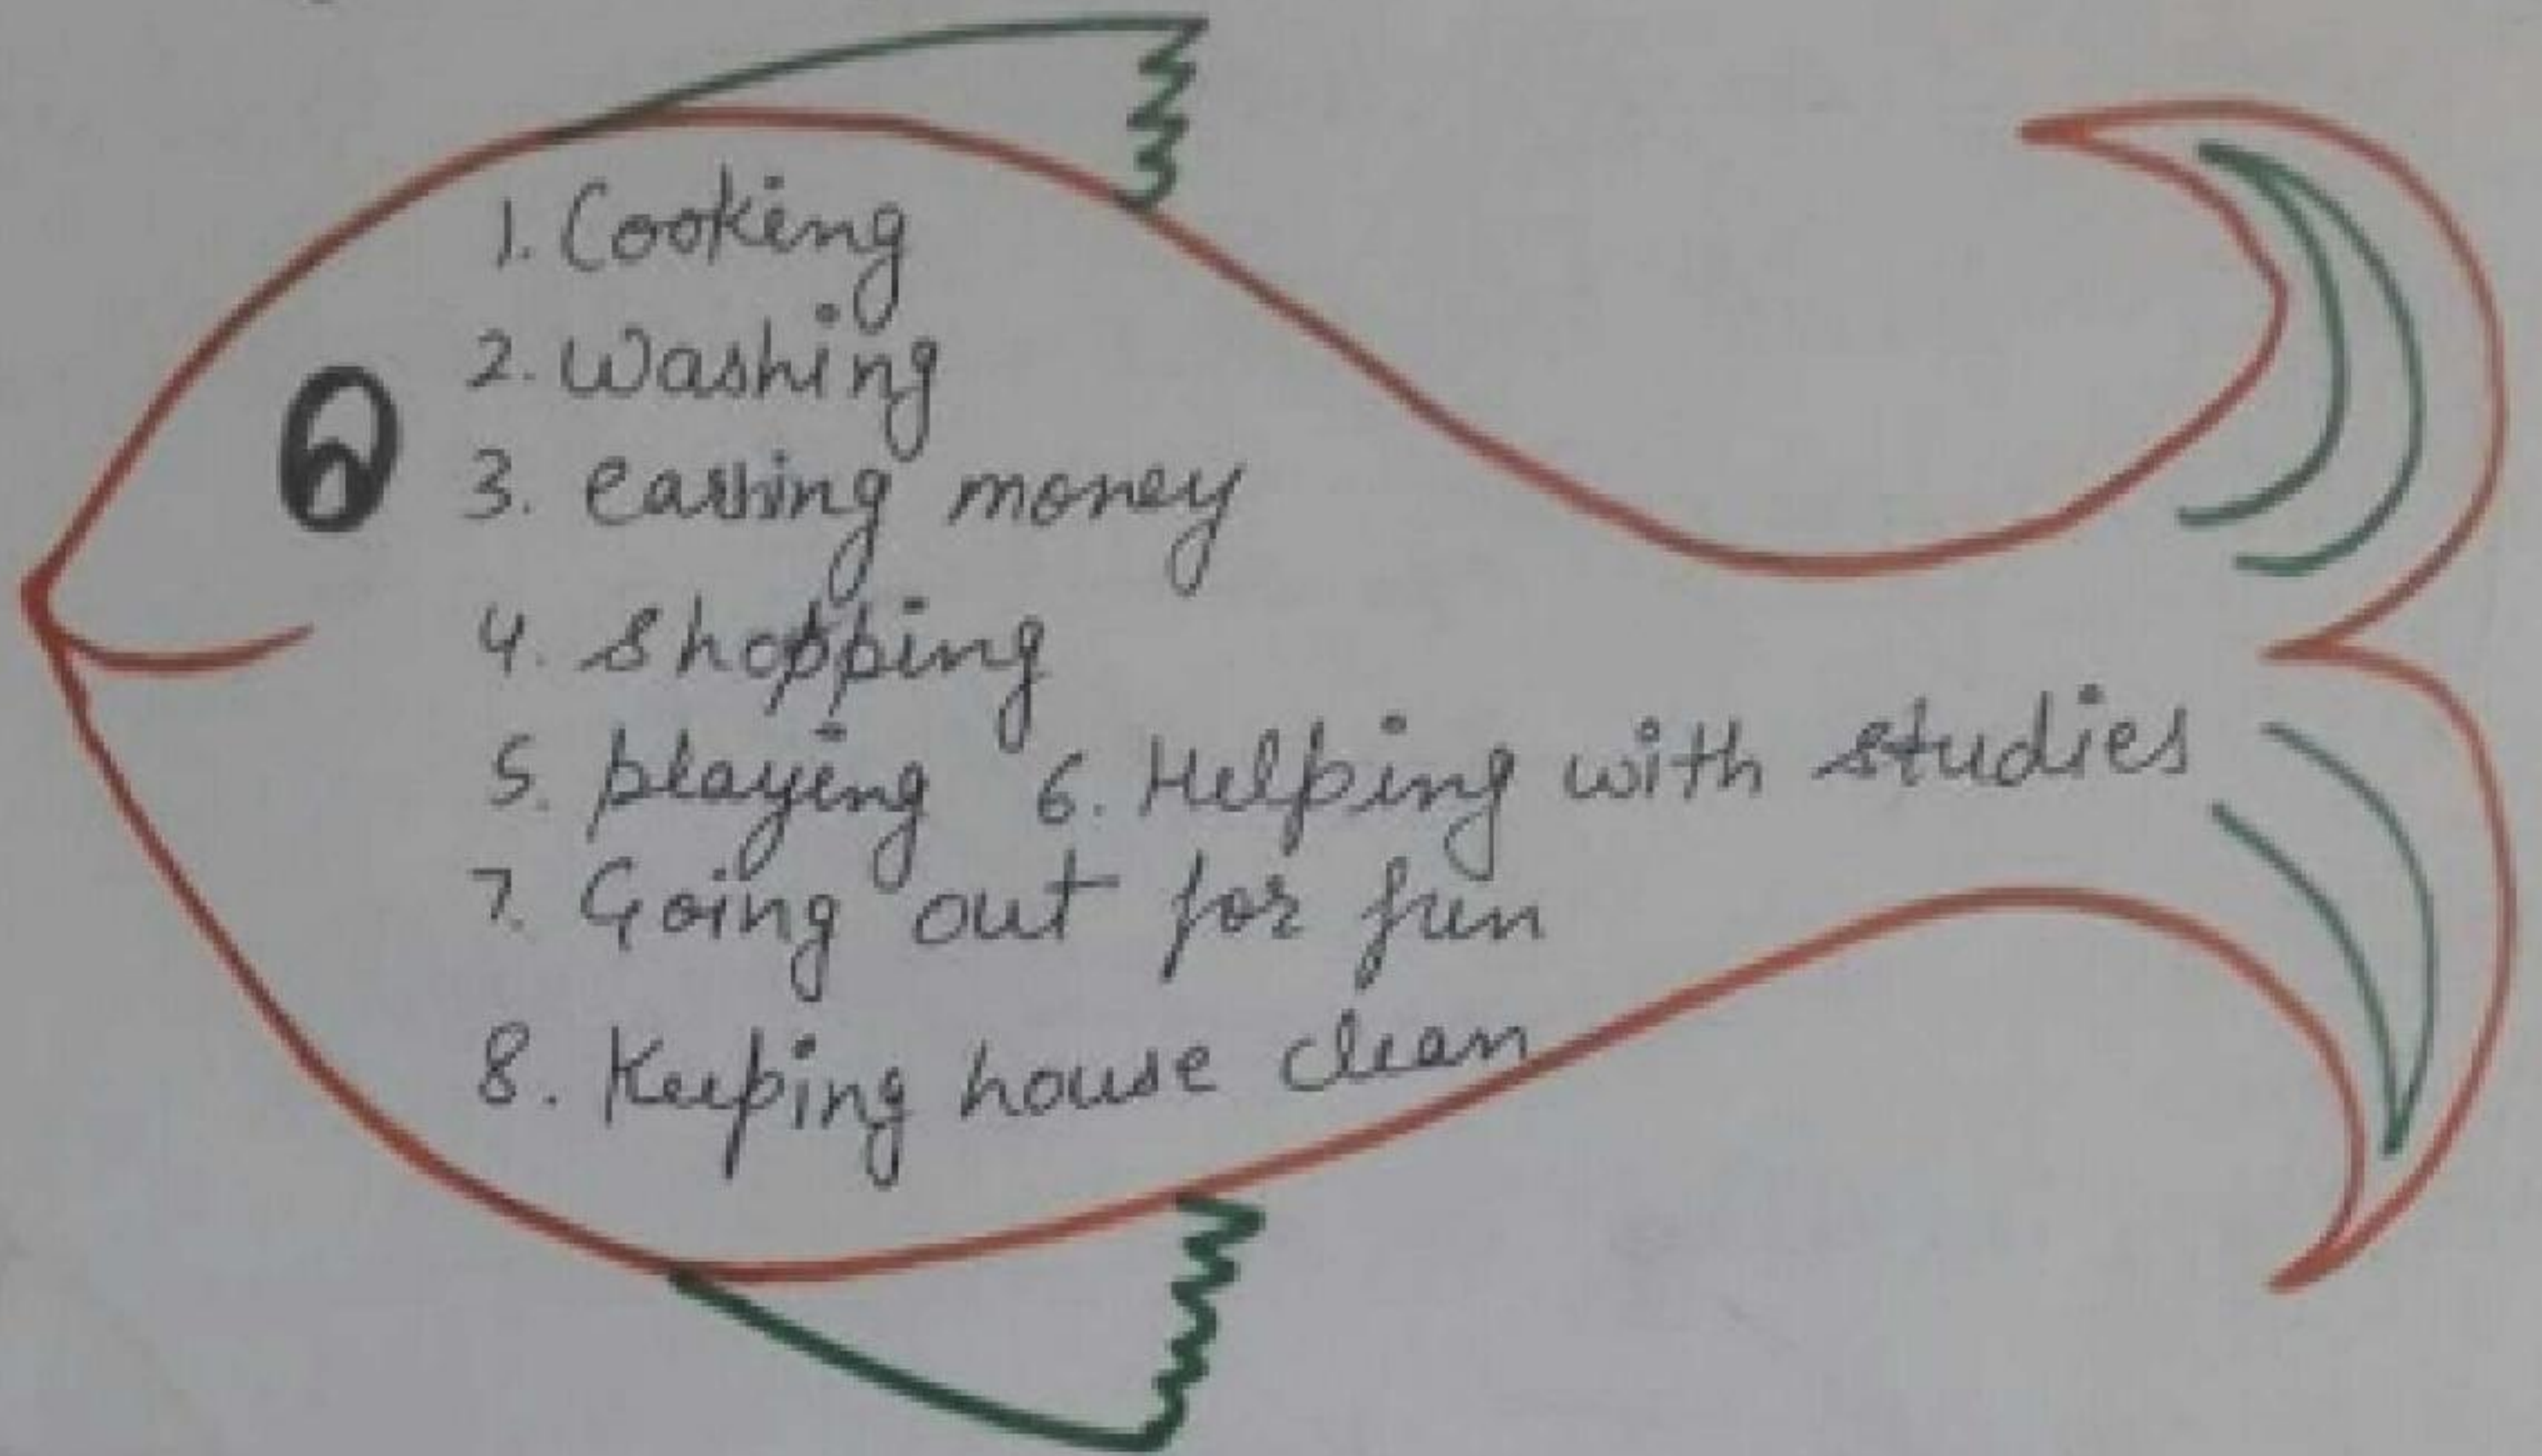 1. Cooking
2. Washing
3. earning money
4. Shopping
5. playing 6. Helping with studies
7. Going out for fun
8. Keeping house clean